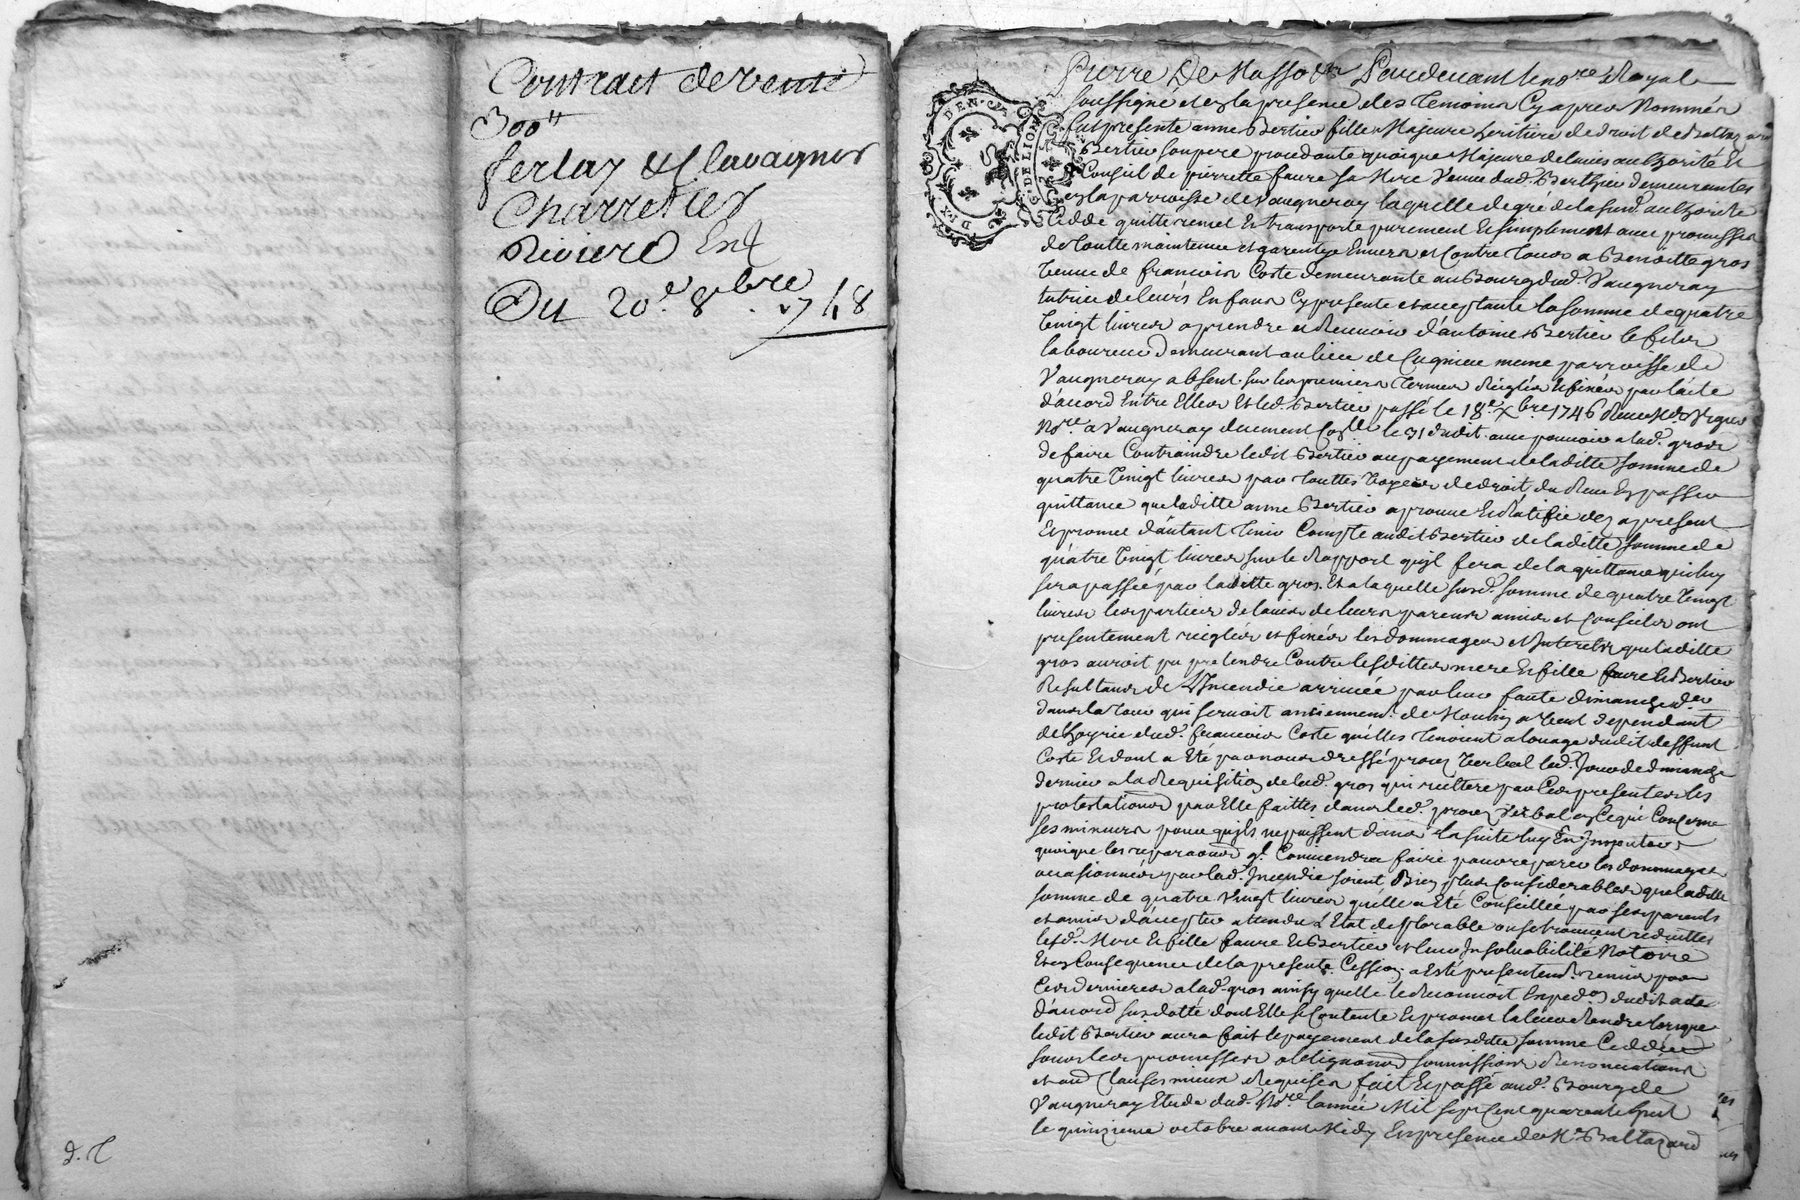 Contract de vente
300tt
ferlay & lavagnes
Charretier
Riviere Exp
Du 20e 8bre 1748
d. T
DEN. CX
G. DE LION
Pardevant le nore Royal
soussigné et en la presence des temoins cy apres Nommés
fut presente anne Bertier fille Majeure heritiere de droit de Baltazard
Bertier son pere procedante quoique Majeure de lavis authorité Et
Conseil de pierrette faure sa Mere Veuve dud. Berthier demeurantes
en la parroisse de Vaugneray laquelle de gré de la susd. authorité
Cedde quitte remet Et transporte purement Et simplement avec promesse
de toutte maintenue et garentye Envers et Contre tous a Benoitte gros
Veuve de francois Coste demeurante au Bourg dud. Vaugneray
tutrice de leurs Enfans Cy presente et acceptante la somme de quatre
Vingt livres a prendre et Recevoir d'antoine Bertier le fils
laboureur demeurant au lieu de meme parroisse de
Vaugneray absent sur les premiers termes Reiglés Et fixés par l'acte
d'accord Entre Elles Et led. Bertier passé le 18e Xbre 1746
Nore a Vaugneray duement le 31 dudit avec pouvoir a lad. gros
de faire Contraindre ledit Bertier au payement de laditte somme de
quatre Vingt livres par touttes Voyes de droit du Receu En passer
quittance que laditte anne Bertier aprouve Et Ratifie des apresent
Et promet d'autant tenir Compte audit Bertier de laditte somme de
quatre Vingt livres sur le Rapport qu'il fera de la quittance qui luy
sera passée par laditte gros. Et a laquelle susd. somme de quatre Vingt
livres les parties de lavis de leurs parens amis et Conseils ont
presentement reiglés et fixés les dommages et Interets que laditte
gros auroit pu pretendre Contre lesdittes mere Et fille faure Et Bertier
Resultans de L'Incendie arrivée par leur faute dimanche der
dans la tour qui servoit anciennemt. de Moulin a Vent dependant
de l'hoyrie dud. francois Coste qu'elles tenoient a louage dudit deffunt
Coste Et dont a Eté par nous dressé procez Verbal led. Jour de dimanche
dernier a la Requisition de lad. gros qui reittere par Ces presentes les
protestations par Elle faittes dans led. procez Verbal en Ce qui Concerne
ses mineurs pour qu'ils ne puissent dans la suite luy En Imputer
quoique les reparaons. ql. Conviendra faire pour reparer les dommages
occasionnés par lad. Incendie soient Bien plus Considerables que laditte
somme de quatre Vingt livres qu'elle a Eté Conseillée par ses parents
et amis d'accepter attendu L'Etat deplorable ou se trouvent reduittes
lesd. Mere Et fille faure Et Bertier et leur Insolvabilité Notoire
Et en Consequence de la presente Cession a Esté presentemt. remis par
Ces dernieres a lad. gros ainsy quelle le Reconnoit Expedon dudit acte
d'accord susdatté dont Elle se Contente Et promet la leur Rendre lorsque
ledit Bertier aura fait le payement de la susditte somme Ceddée
sous les promesses obligaons soumissions Renonciations
et aud Clauses mieux Requises fait Et passé aud. Bourg de
Vaugneray Etude dud. Nore l'année Mil sept Cent quarente huit
le quinzieme octobre avant Midy En presence de Me Baltazard